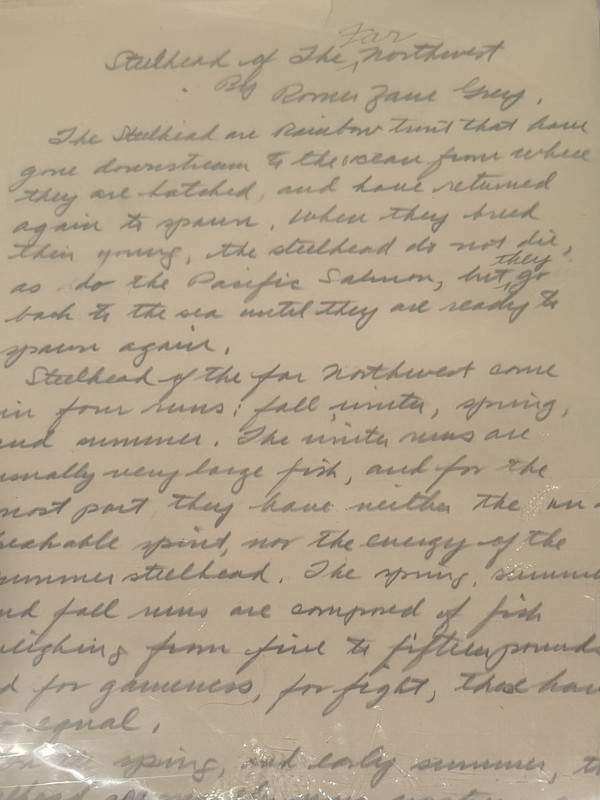 Steelhead of The Far Northwest
By Romer Zane Grey.
The Steelhead are Rainbow trout that have
gone downstream to the ocean from where
they are hatched, and have returned
again to spawn. When they breed
their young, the steelhead do not die,
as do the Pacific Salmon, but they go
back to the sea until they are ready to
spawn again.
Steelhead of the far Northwest come
in four runs: fall, winter, spring,
and summer. The winter runs are
usually very large fish, and for the
most part they have neither the un-
beakable spirit, nor the energy of the
summer steelhead. The spring, summe
nd fall runs are composed of fish
eighing from five to fifteen pounds
d for gameness, for fight, these hav
o equal.
the spring, and early summer, th